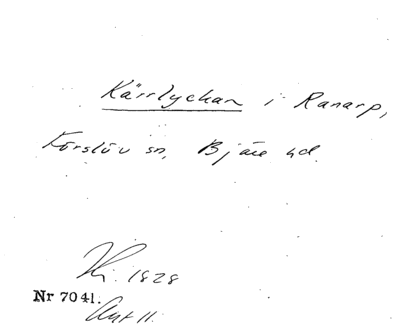 Kärrlyckan i Ranarp,
Förslöv sn, Bjäre hd.
1828
Nr 7041.
Akt 11.